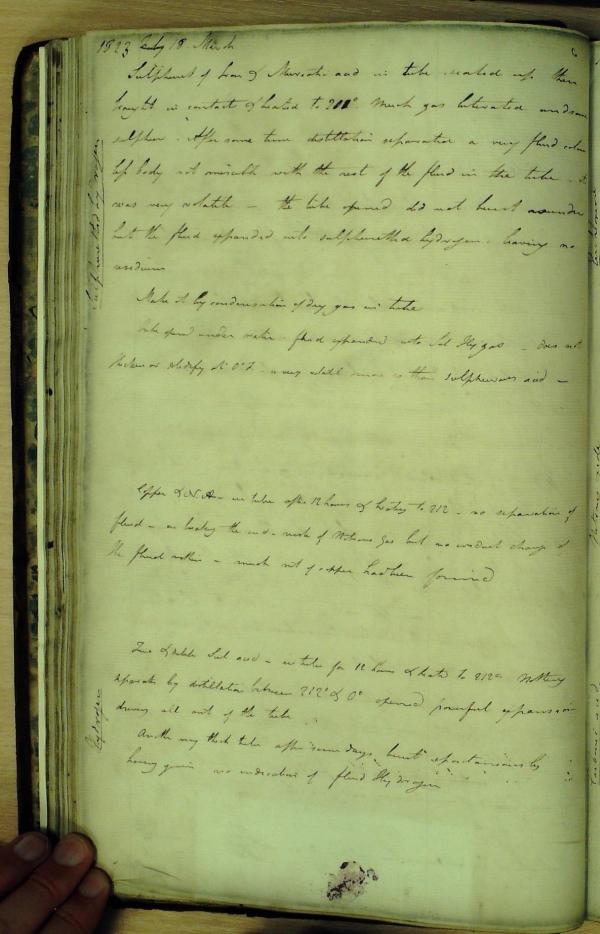 1823 July 18 March
Sulphuret of Iron & Muriatic acid in tube sealed up then
brought in contact & heated to 212°. Much gas liberated and some
sulphur. After some time distillation separated a very fluid colour
less body not miscible with the rest of the fluid in the tube - it
was very volatile - the tube opened did not burst asunder
but the fluid expanded into sulphuretted hydrogen leaving no
residuum
Sulphuretted hydrogen
Make it by condensation of dry gas in tube
tube opened under water - fluid expanded into Sul Hy gas - does not
thicken or solidify at 0° F. a very volatile more so than sulphureous acid -
Copper & N. A - in tube after 12 hours & heating to 212 - no separation of
fluid - on breaking the end - rush of Nitrous gas but no evident change of
the fluid within - much nit of copper had been formed
Zinc & dilute Sul acid - in tube for 12 hours & heated to 212° Nothing
separate by distillation between 212° & 0° opened powerful expansion
driving all out of the tube
hydrogen
Another very thick tube after some days burst spontaneously
having given no indication of fluid Hydrogen